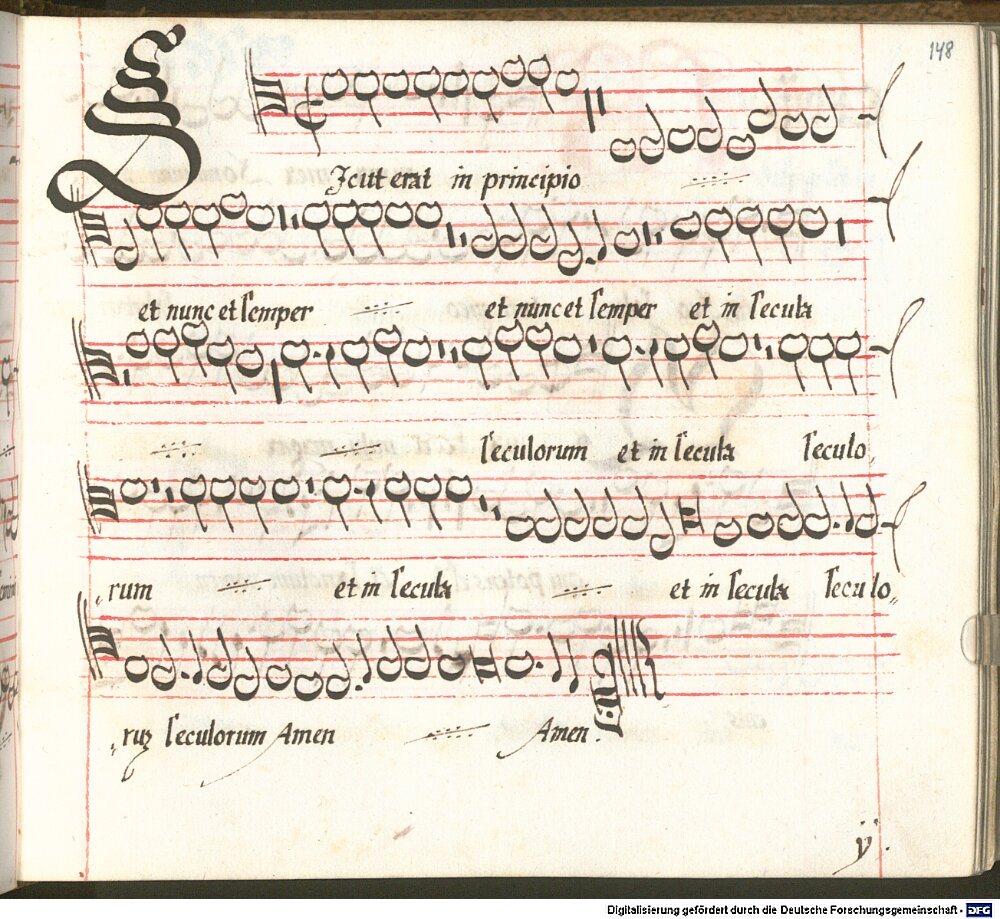 148
Sicut erat in principio
et nunc et semper et nunc et semper et in secula
seculorum et in secula seculo„
„rum et in secula et in secula seculo„
„ruȝ seculorum Amen Amen.
ÿ.
Digitalisierung gefördert durch die Deutsche Forschungsgemeinschaft - DFG